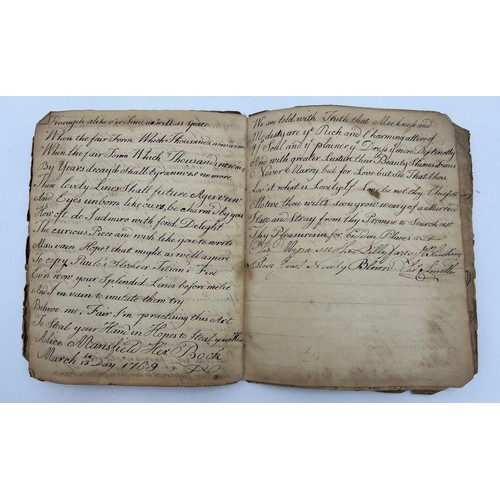 Triumph alike o'er time as well as space
When the fair Form Which Thousands now adore
When the fair Form Which Thousand now
By Years decay'd Shall tyrannise no more
Thes lovly Lines Shall future Ages view
And Eyes unborn like ours, be charm'd by you
How oft do I admire with fond Delight
The curious Piece and wish like you to write
Alas vain Hope! that might as well aspire
To copy Paulo's Stroke or Titian's Fire
Ev'n now your Splended Lines before me lie
And I in vain to imitate them try
Believe me, Fair I'm practising this Art
To Steal your Hand in Hopes to Steal your
Alice Mansfield Her Book
March 13 Day 1769
We are told with Truth that Meekness and
Modesty are ye Rich and Charming attire of
ye Soul and ye plainer ye Dress ye more
and with greater Lustre their Beauty Shines
Never Marry but for Love but See That thou
Lov'st what is Lovely If be not thy Chiefest
Motive thou wilt Soon grow weary of a Married
State and Stray from thy Promise to Search out
thy Pleasures in forbiden Places
Pure and Newly Blown